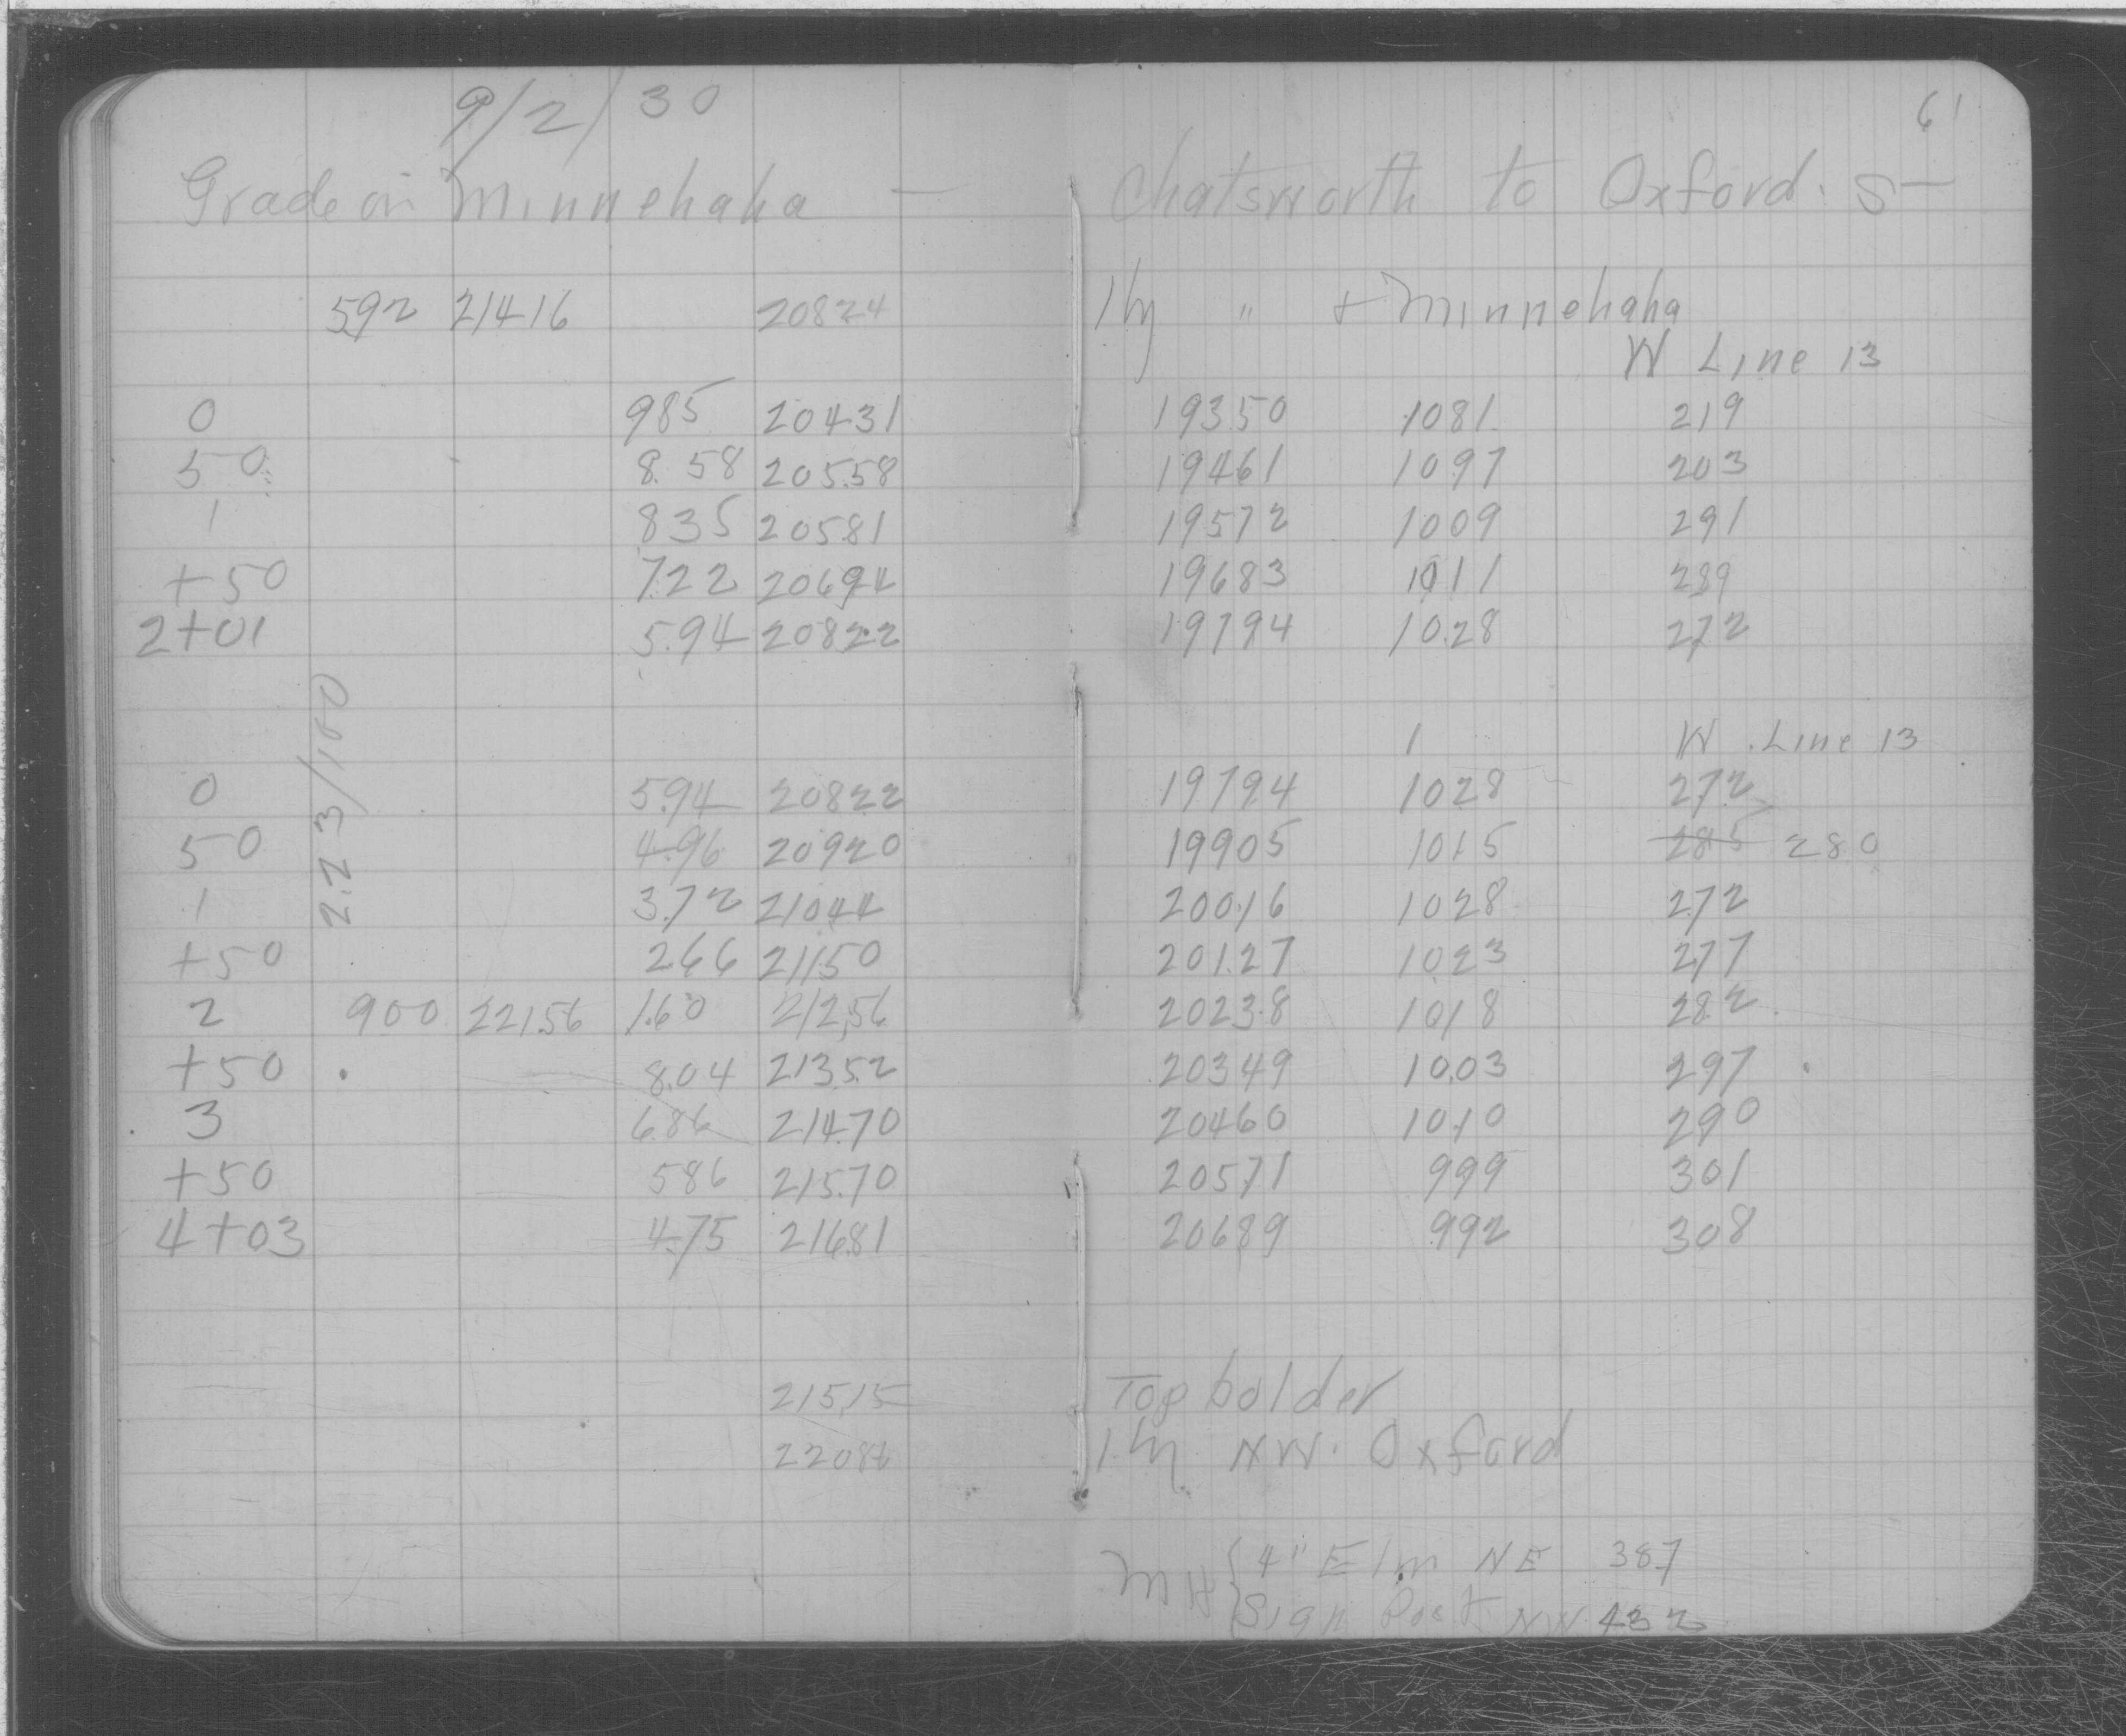 9/2/30 61
Grade on Minnehaha — Chatsworth to Oxford. S—
592 21416 20824 Hy " + Minnehaha
W Line 13
0 985 20431 19350 1081 219
50 8.58 20558 19461 1097 203
1 835 20581 19572 1009 291
+50 722 20694 19683 1011 289
2+01 5.94 20822 19794 1028 272
2.23/100
1 W. Line 13
0 5.94 20822 19794 1028 272
50 4.96 20920 19905 1015 285 280
1 3.72 21044 20016 1028 272
+50 266 21150 20127 1023 277
2 900 22156 1.60 21256 20238 1018 282
+50 8.04 21352 20349 1003 297
3 686 21470 20460 1010 290
+50 586 21570 20571 999 301
4+03 4.75 21681 20689 992 308
21515 Top bolder
22086 Hy NW. Oxford
MH { 4" Elm NE 387
Sign Post NW. 432